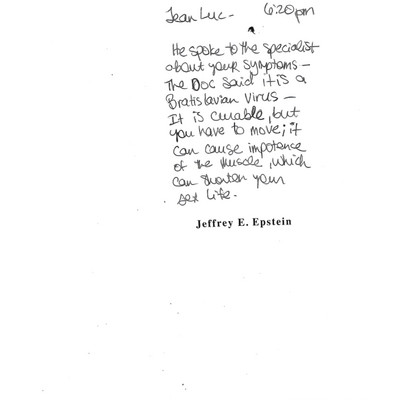 Jean Luc- 6:20pm
He spoke to the specialist
about your symptoms —
The Doc said it is a
Bratislavian Virus —
It is curable, but
you have to move; it
can cause impotence
of the muscle, which
can shorten your
sex life.
Jeffrey E. Epstein